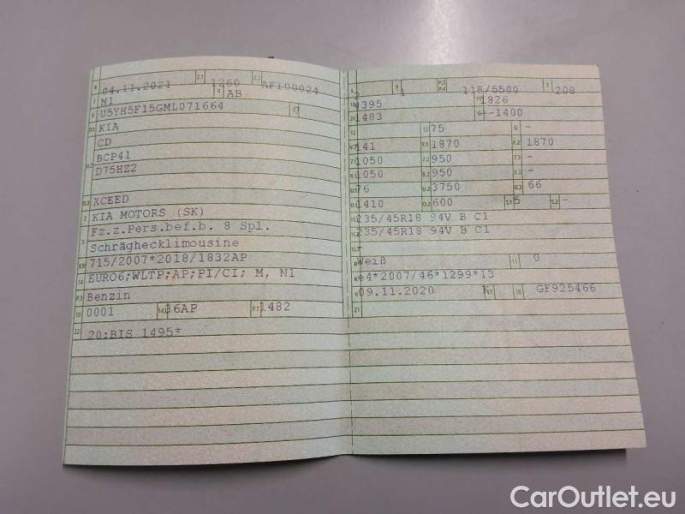 04.11.2021 1260 AF100024
M1 AB
U5YH5F15GML071664 0
KIA
CD
BCP41
D75HZ2
XCEED
KIA MOTORS (SK)
Fz.z.Pers.bef.b. 8 Spl.
Schräghecklimousine
715/2007*2018/1832AP
EURO6;WLTP;AP;PI/CI; M, N1
Benzin
0001 36AP 1482
20:BIS 1495*
118/5500 208
4395 1826
1483 -1400
75 -
141 1870 1870
1050 950 -
1050 950 -
76 3750 66
1410 600 5 -
235/45R18 94V B C1
235/45R18 94V B C1
Weiß 0
e4*2007/46*1299*13
09.11.2020 GF925466
CarOutlet.eu